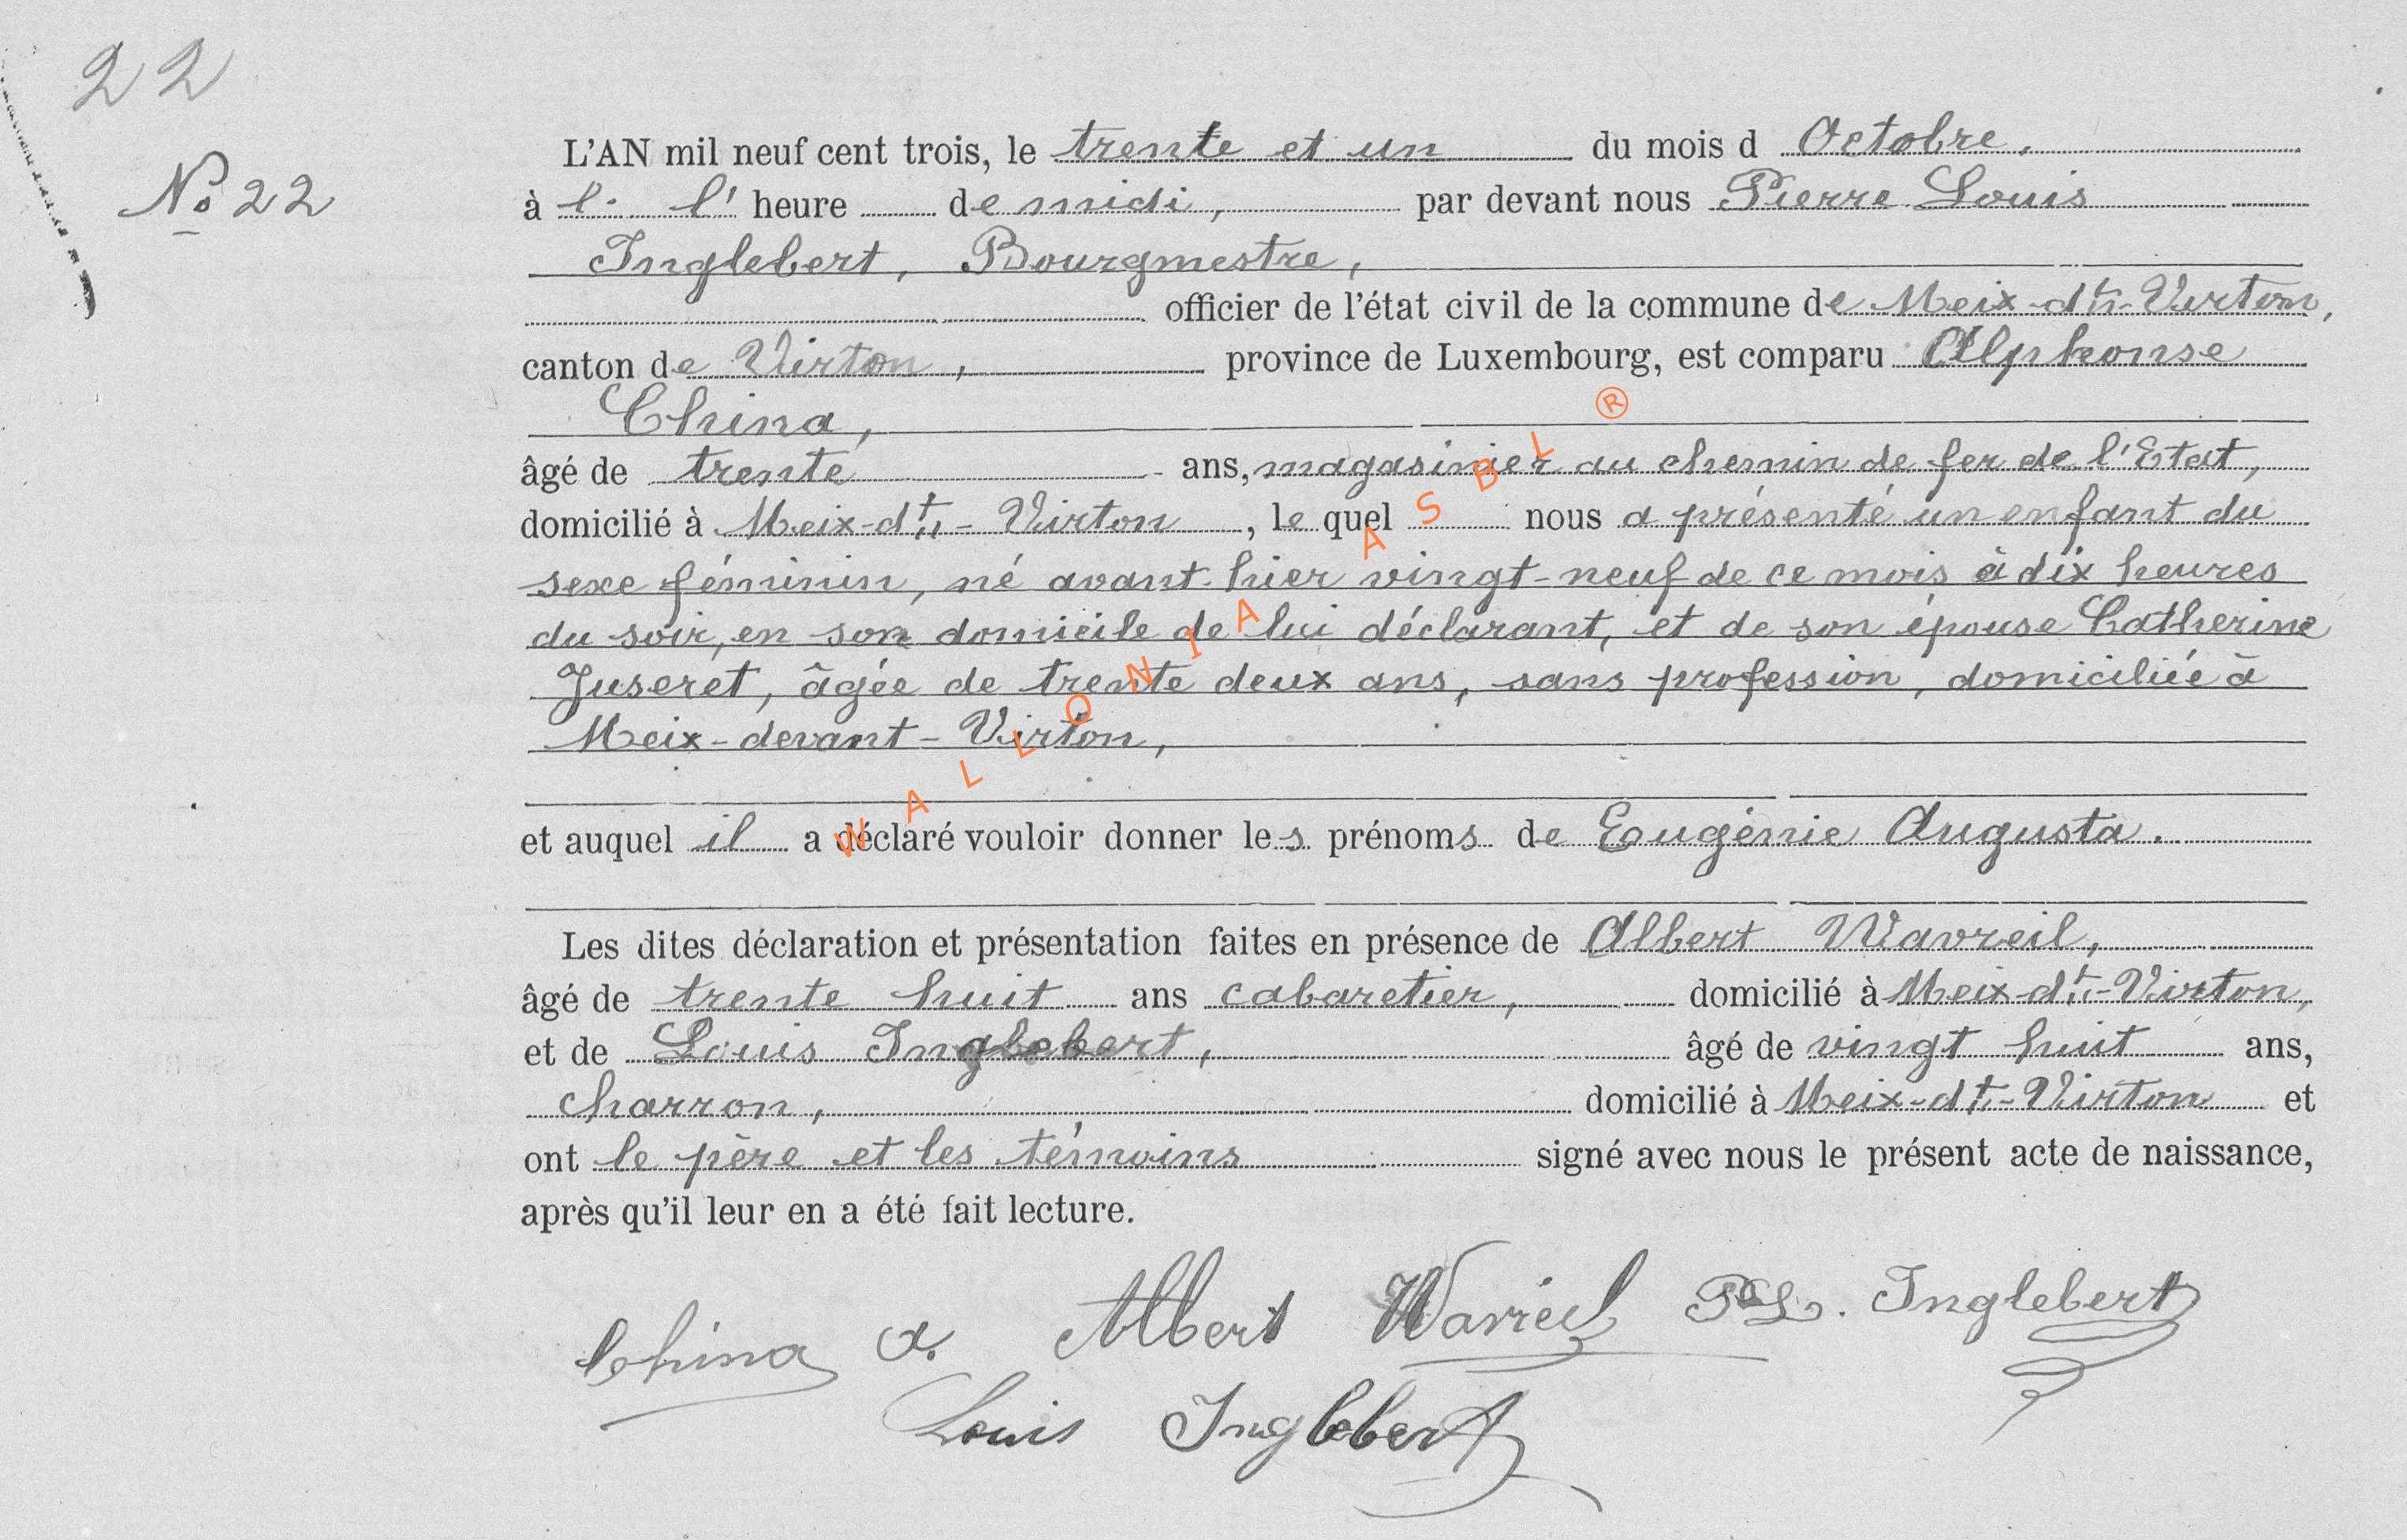 22
No 22
L'AN mil neuf cent trois, le trente et un du mois d Octobre,
à l. l' heure de midi, par devant nous Pierre Louis
Inglebert, Bourgmestre,
officier de l'état civil de la commune de Meix-dt-Virton,
canton de Virton, province de Luxembourg, est comparu Alphonse
China,
âgé de trente ans, magasinier au chemin de fer de l'Etat,
domicilié à Meix-dt-Virton, le quel nous a présenté un enfant du
sexe féminin, né avant-hier vingt-neuf de ce mois à dix heures
du soir, en son domicile de lui déclarant, et de son épouse Catherine
Juseret, âgée de trente deux ans, sans profession, domiciliée à
Meix-devant-Virton,
et auquel il a déclaré vouloir donner les prénoms de Eugénie Augusta.
Les dites déclaration et présentation faites en présence de Albert Wavreil,
âgé de trente huit ans cabaretier, domicilié à Meix-dt-Virton,
et de Louis Inglebert, âgé de vingt huit ans,
charron, domicilié à Meix-dt-Virton et
ont le père et les témoins signé avec nous le présent acte de naissance,
après qu'il leur en a été fait lecture.
China a. Albert P L. Inglebert
Louis Inglebert
WALLONIA ASBL ®